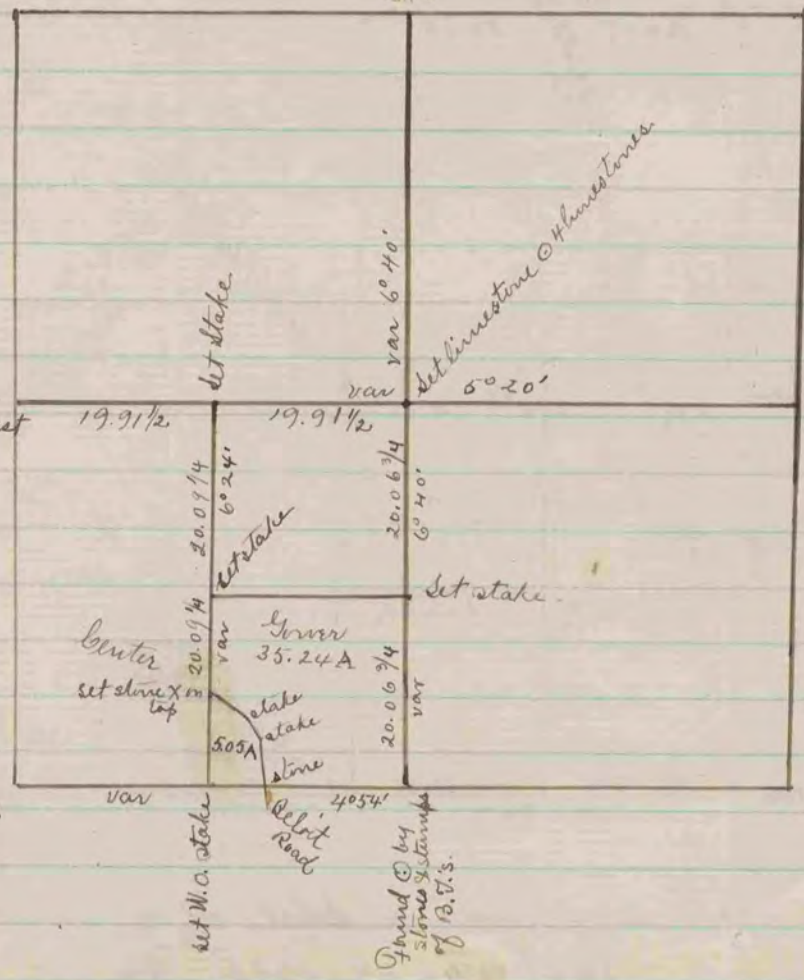 var 6° 40'
Set limestone ⊙ 4 limestones
Set Stake
var 5° 20'
st 19.91 1/2 19.91 1/2
20.09 1/4
6° 24'
20.06 3/4
6° 40'
set stake
Set stake.
20.09 1/4
var
35.24 A
Center
set stone X on
top
stake
stake
5.05 A
stone
20.06 3/4
var
var 4° 54'
Beloit
Road
set W.O. stake
Found ⊙ by
stones & stumps
of B.T.'s.